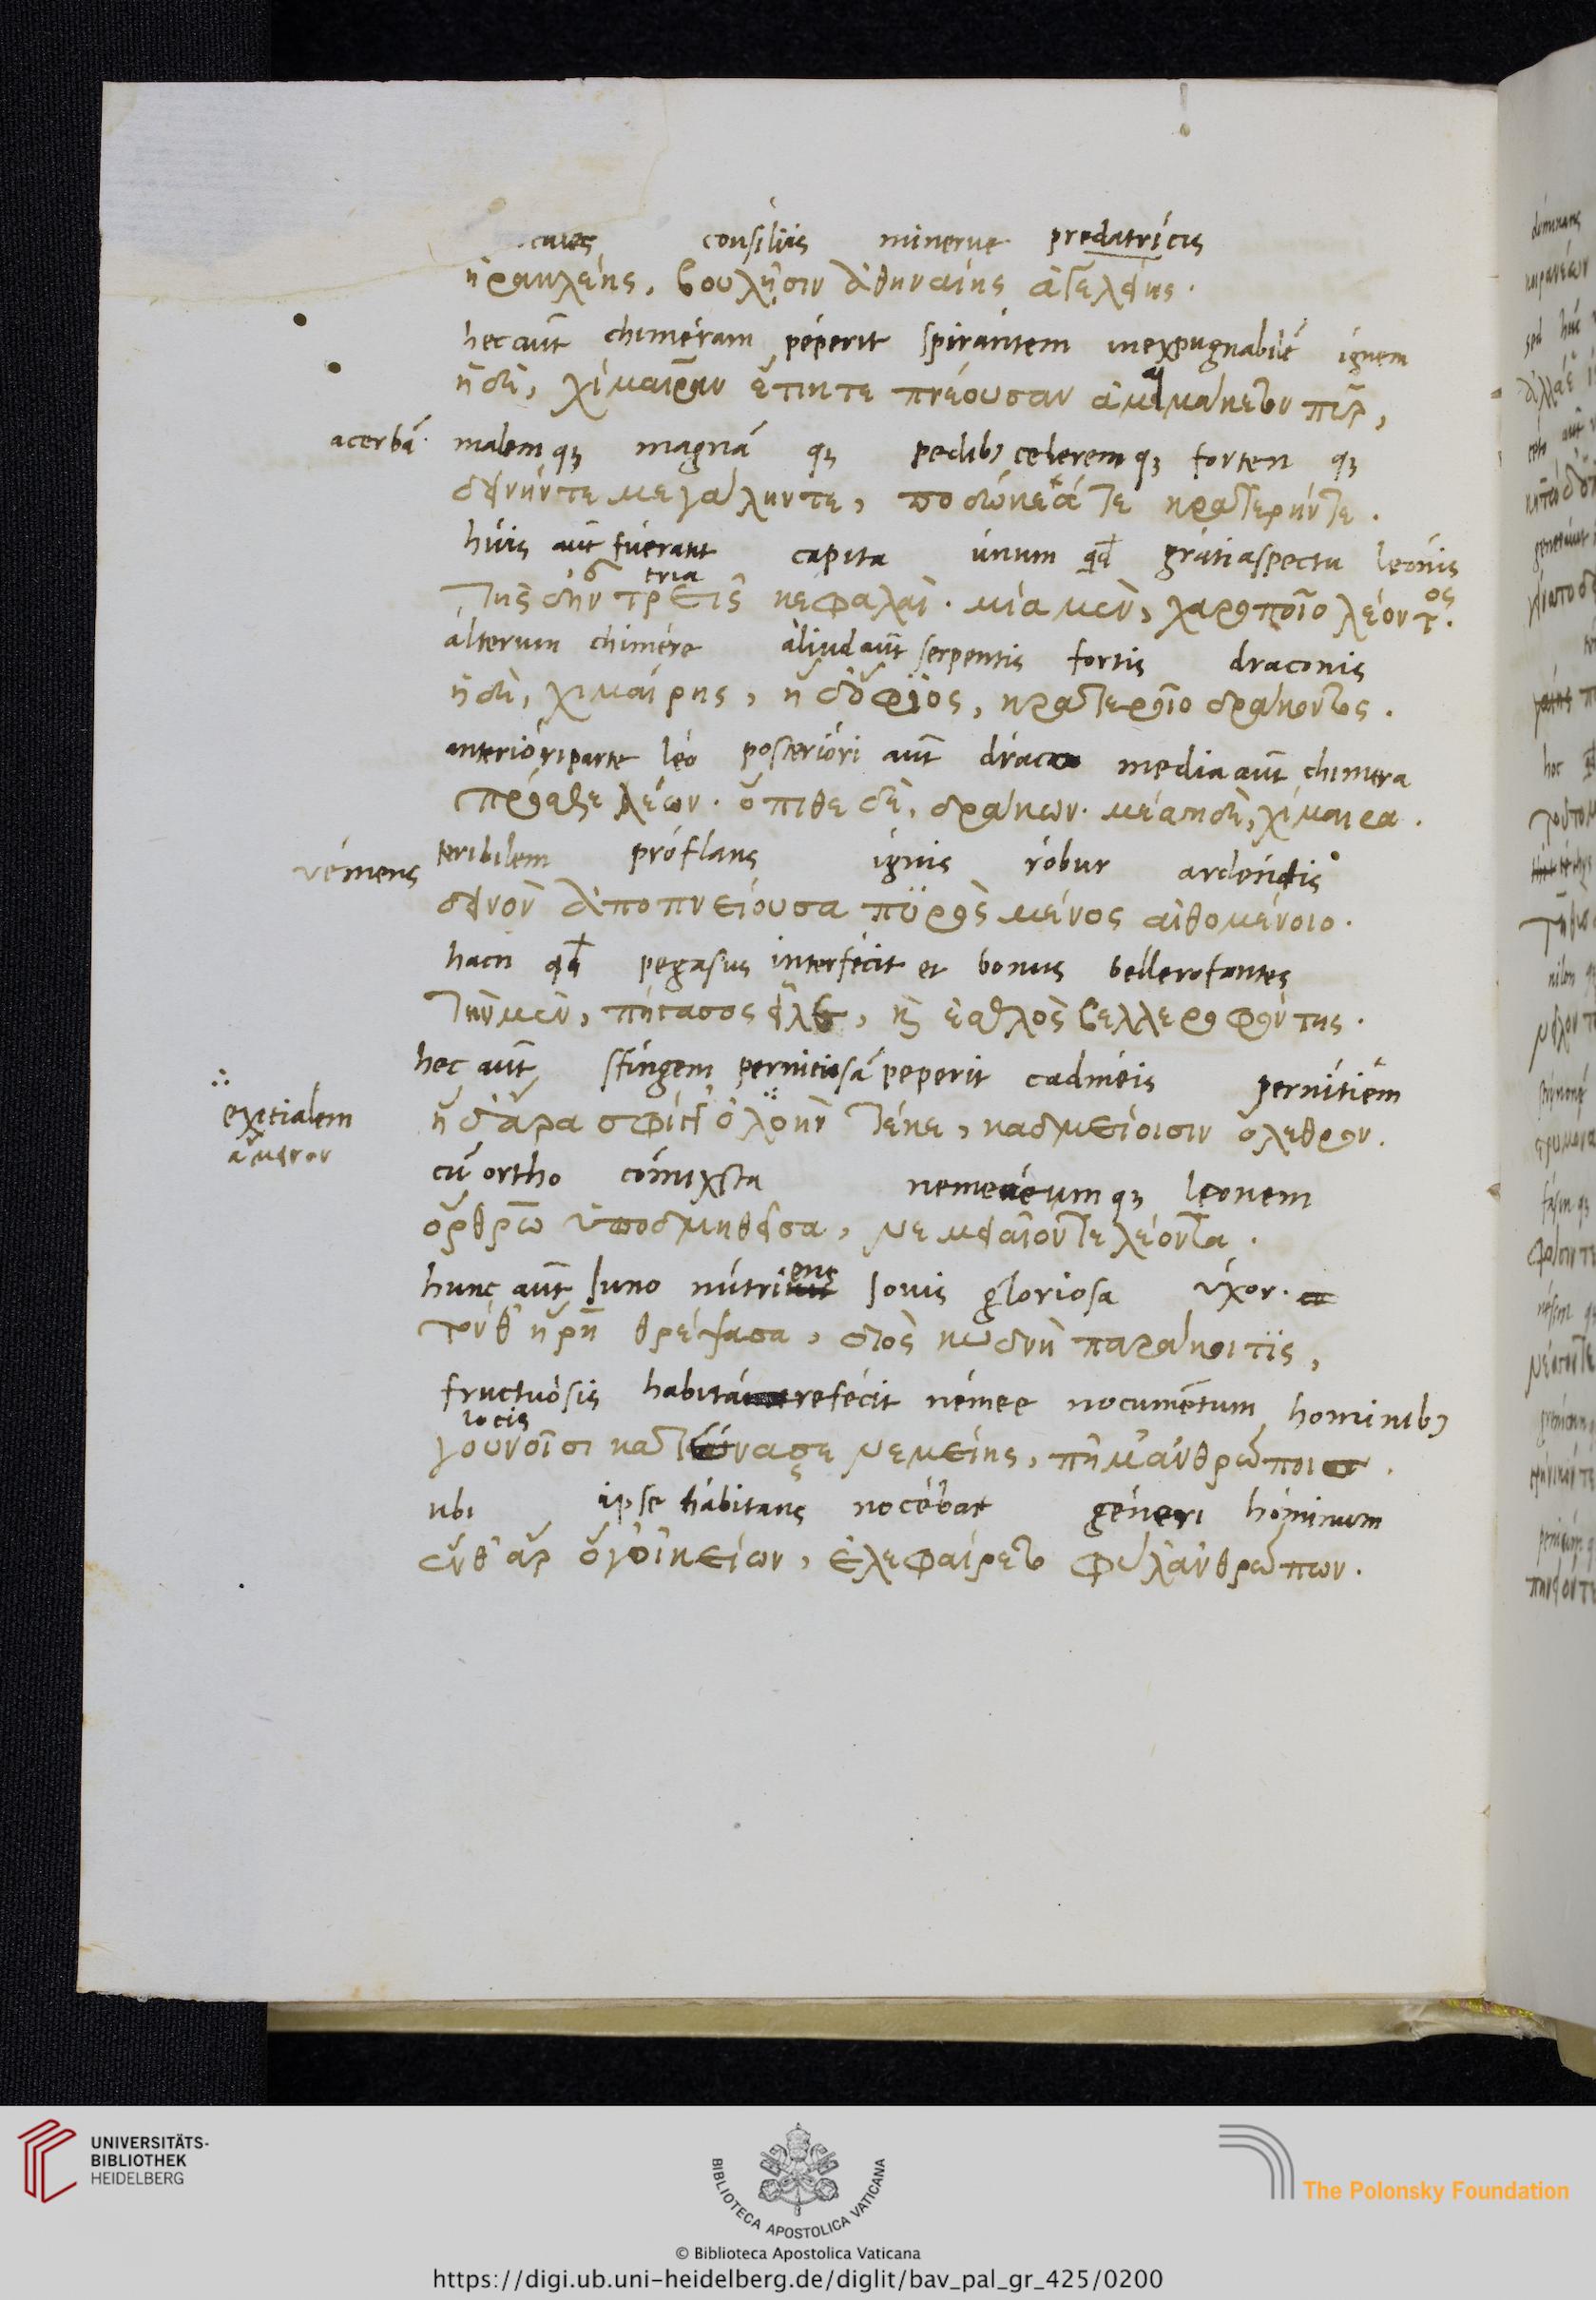 consiliis minerve predatricis
ἡρακλείης, βουλῇσιν ἀθηναίης ἀγελείης.
hec aut̃ chimeram peperit spirántem inexpugnabilẽ ignem
ἡ δὲ, χίμαιραν ἔτικτε πνέουσαν ἀμαιμάκετον πῦρ,
acerbã malem qꝫ magnã qꝫ pedibꝫ celerem qꝫ forten qꝫ
δεινήν τε μεγάλην τε, ποδώκεά τε κρατερήν τε.
huis aut̃ fuerant capita unum qd̃ grati aspectu leonis
tria
τῆς δ' ἦν τρεῖς κεφαλαὶ. μία μὲν, χαροποῖο λέοντος.
álterum chimére áliud aut̃ serpentis fortis draconis
ἡ δὲ, χιμαίρης, ἡ δ' ὄφιος, κρατεροῖο δράκοντος.
anterióri parte léo posterióri aut̃ dráco media aut̃ chimera
πρόσθε λέων. ὄπιθε δὲ, δράκων. μέσση δὲ, χίμαιρα.
véniens teribilem próflans ignis róbur ardéntis
δεινὸν ἀποπνείουσα πυρὸς μένος αἰθομένοιο.
hacn qd̃ pegasus interfécit et bonus bellerofantes
τὴν μὲν, πήγασος εἷλε, καὶ ἐσθλὸς βελλεροφόντης.
hec aut̃ sfingem pernitiosã peperit cadméis pernitiẽm
exitialem
ἡ δ' ἄρα σφίγγ' ὀλοὴν τέκε, καδμείοισιν ὄλεθρον.
cũ ortho comixta nemeeum qꝫ leonem
ὄρθρῳ ὑποδμηθεῖσα, νεμειαῖόν τε λέοντα.
hunc aut̃ Iuno nútriens Iovis gloriosa uxor.
τόν ῥ' ἥρη θρέψασα, διὸς κυδνὴ παράκοιτις,
fructuósis habitáre fécit némee nocumẽntum hominibꝫ
locis
γουνοῖσι κατένασσε νεμείης, πῆμ' ἀνθρώποις.
ubi ipse hábitans nocébat géneri hóminum
ἔνθ' ἄρ' ὅγ' οἰκείων, ἐλεφαίρετο φῦλ' ἀνθρώπων.
UNIVERSITÄTS-
BIBLIOTHEK
HEIDELBERG
BIBLIOTECA APOSTOLICA VATICANA
The Polonsky Foundation
© Biblioteca Apostolica Vaticana
https://digi.ub.uni-heidelberg.de/diglit/bav_pal_gr_425/0200